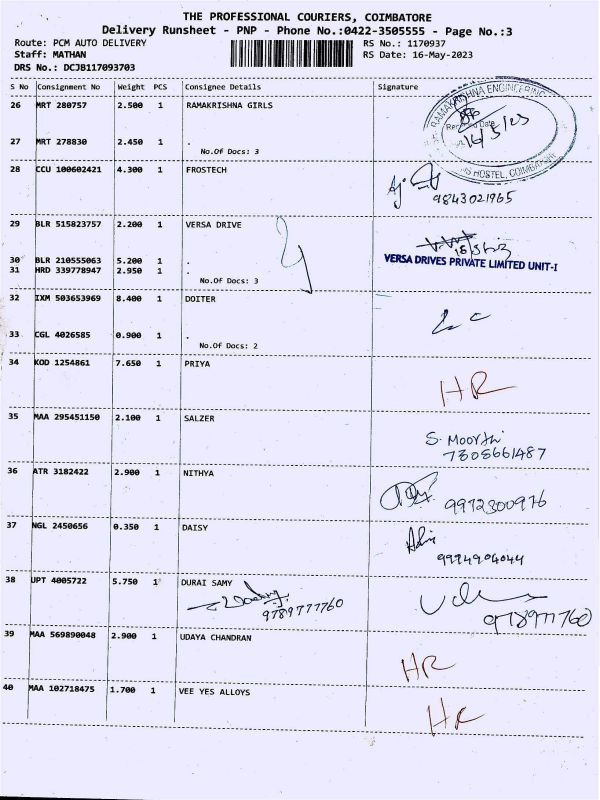 THE PROFESSIONAL COURIERS, COIMBATORE
Delivery Runsheet - PNP - Phone No.:0422-3505555 - Page No.:3
Route: PCM AUTO DELIVERY RS No.: 1170937
Staff: MATHAN RS Date: 16-May-2023
DRS No.: DCJB117093703
S No Consignment No Weight PCS Consignee Details Signature
26 MRT 280757 2.500 1 RAMAKRISHNA GIRLS
RAMAKRISHNA ENGINEERING
16/5/23
HOSTEL, COIMBATORE
27 MRT 278830 2.450 1 .
No.Of Docs: 3
28 CCU 100602421 4.300 1 FROSTECH
9843021965
29 BLR 515823757 2.200 1 VERSA DRIVE
30 BLR 210555063 5.200 1 .
VERSA DRIVES PRIVATE LIMITED UNIT-I
31 HRD 339778947 2.950 1 .
No.Of Docs: 3
32 IXM 503653969 8.400 1 DOITER
33 CGL 4026585 0.900 1 .
No.Of Docs: 2
34 KOD 1254861 7.650 1 PRIYA
HR
35 MAA 295451150 2.100 1 SALZER
S. Moorthi
7305661487
36 ATR 3182422 2.900 1 NITHYA
9972300976
37 NGL 2450656 0.350 1 DAISY
9994904044
38 UPT 4005722 5.750 1 DURAI SAMY
9789777760
39 MAA 569890048 2.900 1 UDAYA CHANDRAN
HR
40 MAA 102718475 1.700 1 VEE YES ALLOYS
HR